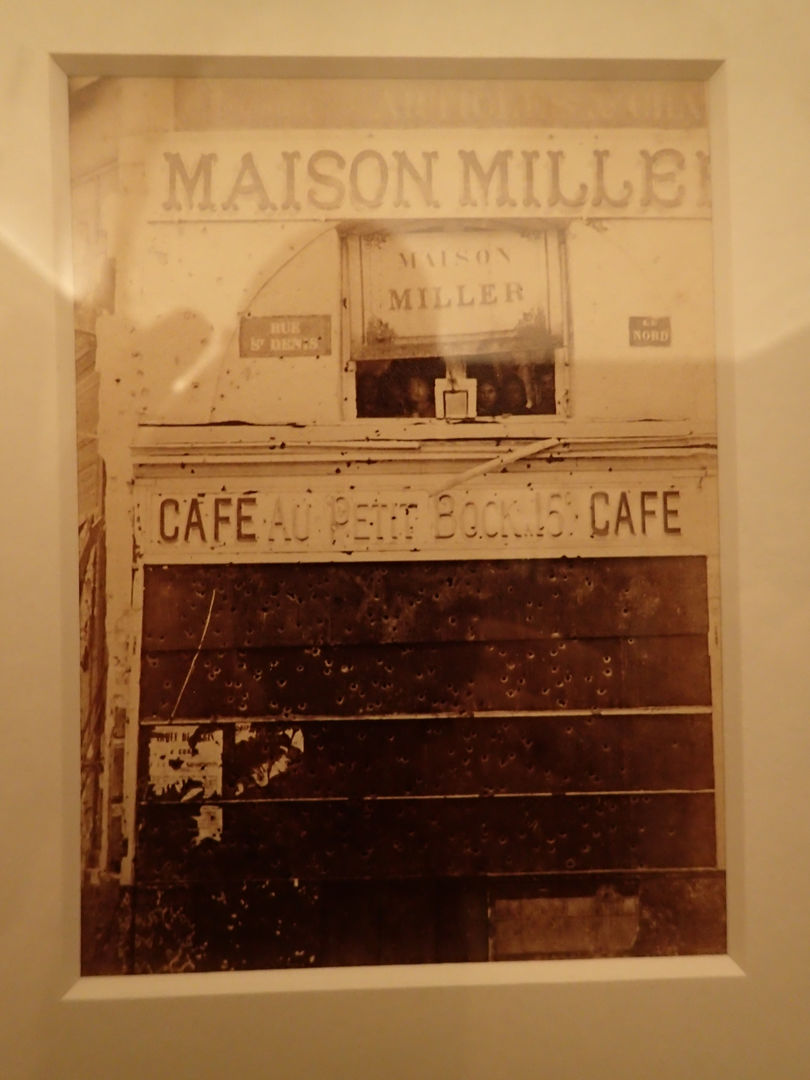 ARTICLES DE
MAISON MILLER
MAISON
MILLER
RUE
ST DENIS
LE
NORD
CAFÉ AU PETIT BOCK 15c CAFÉ